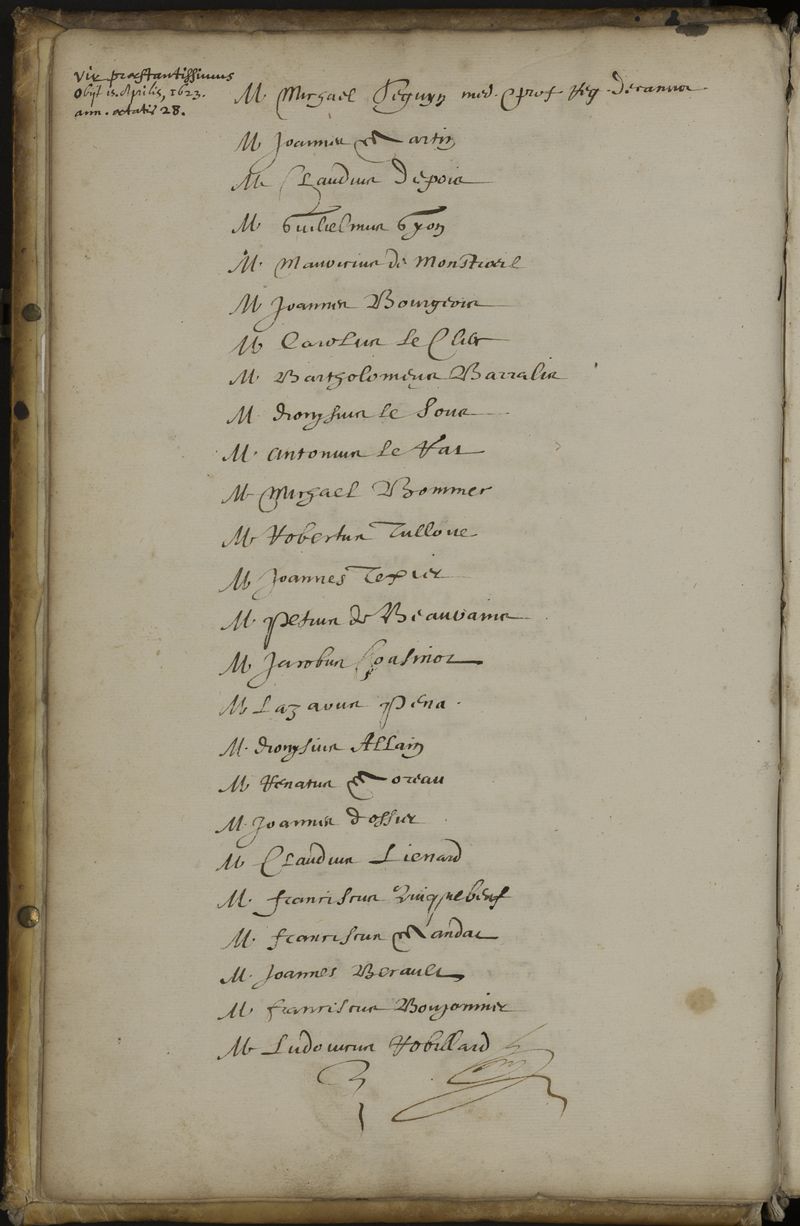 vir præstantissimus
obyt 15. Aprilis, 1623.
ann. ætatis 28.
M. Michael Seguyn med. prof Reg. Decanus
M Joannes Martin
M Claudius
M Guilielmus
M. Mauricius de Monstroeil
M Joannes Bourgeois
M Carolus le Clerc
M. Bartholomeus Barralis
M. dionysius le Soue
M. Antonius le
M Michael Bommer
M Robertus Tulloue
M Joannes Texier
M. Petrus de Beauvains
M Jacobus Cousinot
M Lazarus Pena
M. dionysius Allain
M Renatus Moreau
M. Joannes dossier
M Claudius Lienard
M. franciscus
M. franciscus Mandat
M. Joannes Berault
M. franciscus Boujonnier
M Ludovicus Robillard